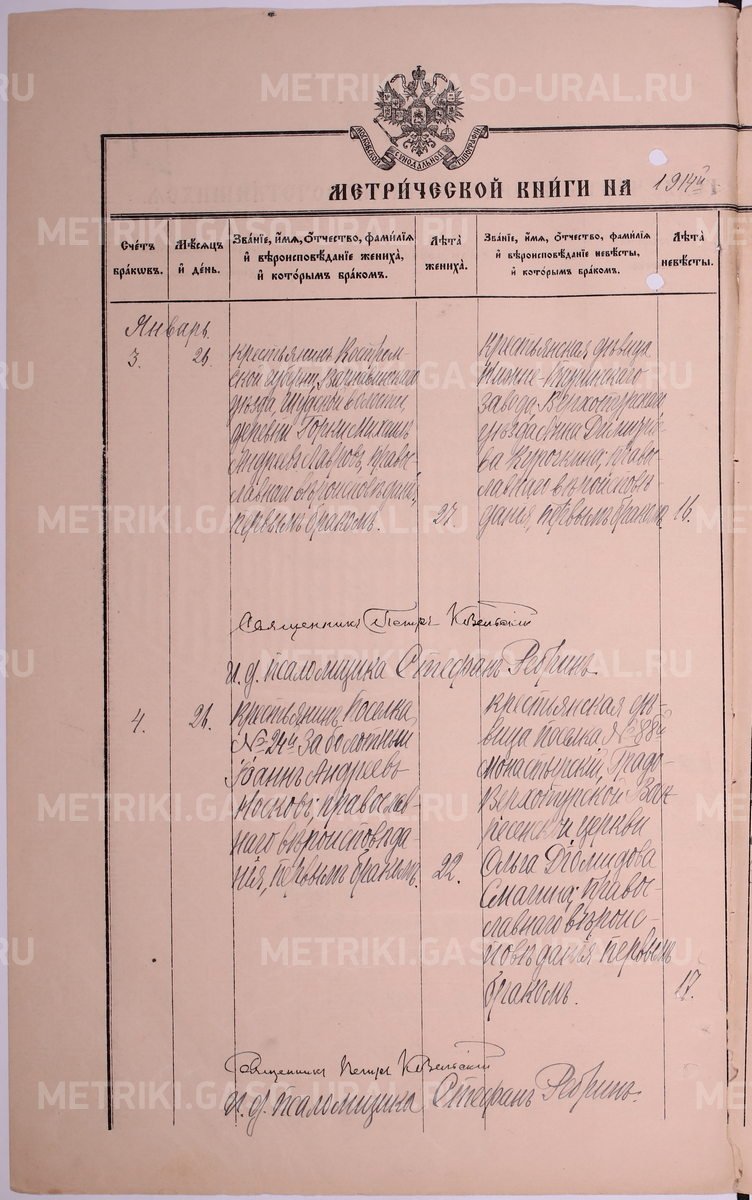 МОСКОВСКОЙ СѴНОДАЛЬНОЙ ТИПОГРАФІИ
МЕТРИ́ЧЕСКОЙ КНИ́ГИ НА 1914й
Счётъ бра́кѡвъ.
Мѣ́сяцъ и҆ де́нь.
Зва́нїе, и҆́мя, ѻ҆́тчество, фами́лїя и҆ вѣроисповѣ́данїе жениха̀, и҆ кото́рымъ бра́комъ.
Лѣта̀ жениха̀.
Зва́нїе, и҆́мя, ѻ҆́тчество, фами́лїя и҆ вѣроисповѣ́данїе невѣ́сты, и҆ кото́рымъ бра́комъ.
Лѣта̀ невѣ́сты.
Январь.
3.
26.
крестьянинъ Костром-
ской губерніи, Варнавинскаго
уѣзда,
деревни Михаилъ
Андреевъ Лавровъ, право-
славнаго вѣроисповѣданія,
первымъ бракомъ.
27.
крестьянская дѣвица
Нижне-Туринскаго
завода Верхотурскаго
уѣзда Анна Димитріе-
ва православнаго вѣроисповѣ-
данія, первымъ бракомъ.
16.
Священникъ Петръ
и. д. псаломщика Стефанъ Ребринъ.
4.
26.
крестьянинъ поселка
№ 24й Заболотный
Іоаннъ Андреевъ
Носковъ, православ-
наго вѣроисповѣда-
нія, первымъ бракомъ.
22.
крестьянская дѣ-
вица поселка № 88й
монастырскій, Градо-
Верхотурской Воз-
несенской церкви
Ольга Діомидова
Смагина; право-
славнаго вѣроис-
повѣданія первымъ
бракомъ.
17.
Священникъ Петръ
и. д. псаломщика Стефанъ Ребринъ.
METRIKI.GASO-URAL.RU